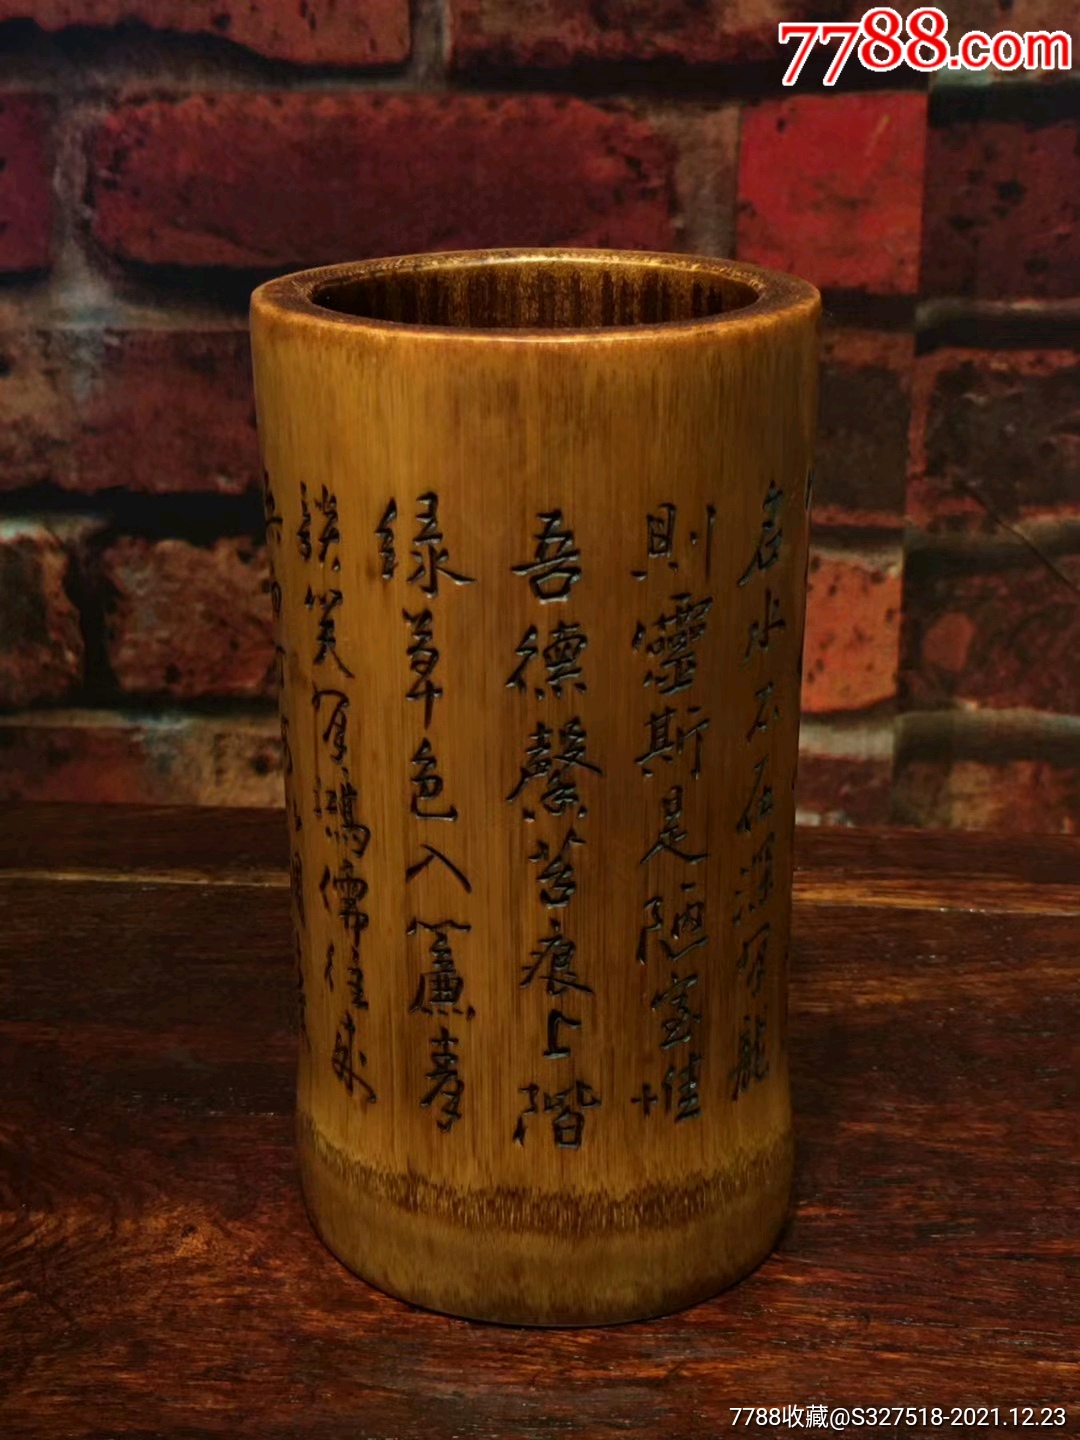 7788.com
名水不在深有龍
則靈斯是陋室惟
吾德馨苔痕上階
緑草色入簾青
談笑有鴻儒往來
7788收藏@S327518-2021.12.23